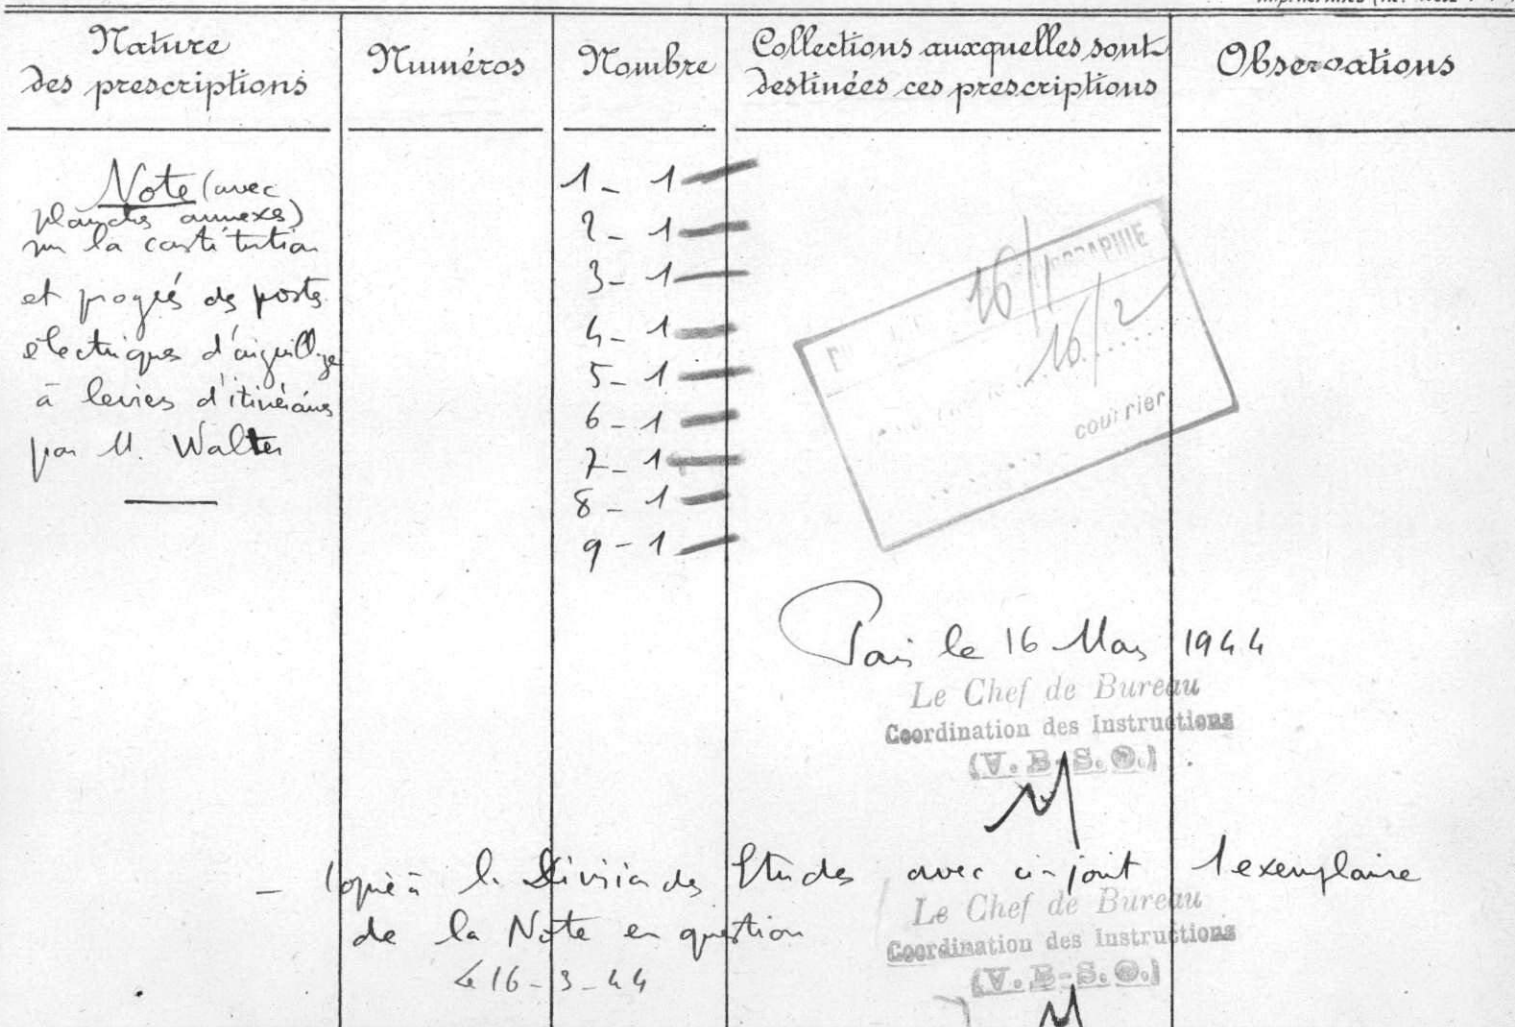 Nature
des prescriptions
Numéros
Nombre
Collections auxquelles sont
destinées ces prescriptions
Observations
Note (avec
planches annexes)
sur la constitution
et progrès des postes
électriques d'aiguillage
à leviers d'itinéraires
par M. Walter
1 - 1
2 - 1
3 - 1
4 - 1
5 - 1
6 - 1
7 - 1
8 - 1
9 - 1
16/1
16/2
courrier
Paris le 16 Mars 1944
Le Chef de Bureau
Coordination des Instructions
(V. B-S. O.)
- Copie à la Division des Etudes avec ci-joint 1 exemplaire
de la Note en question
Le Chef de Bureau
Coordination des Instructions
le 16-3-44
(V. B-S. O.)